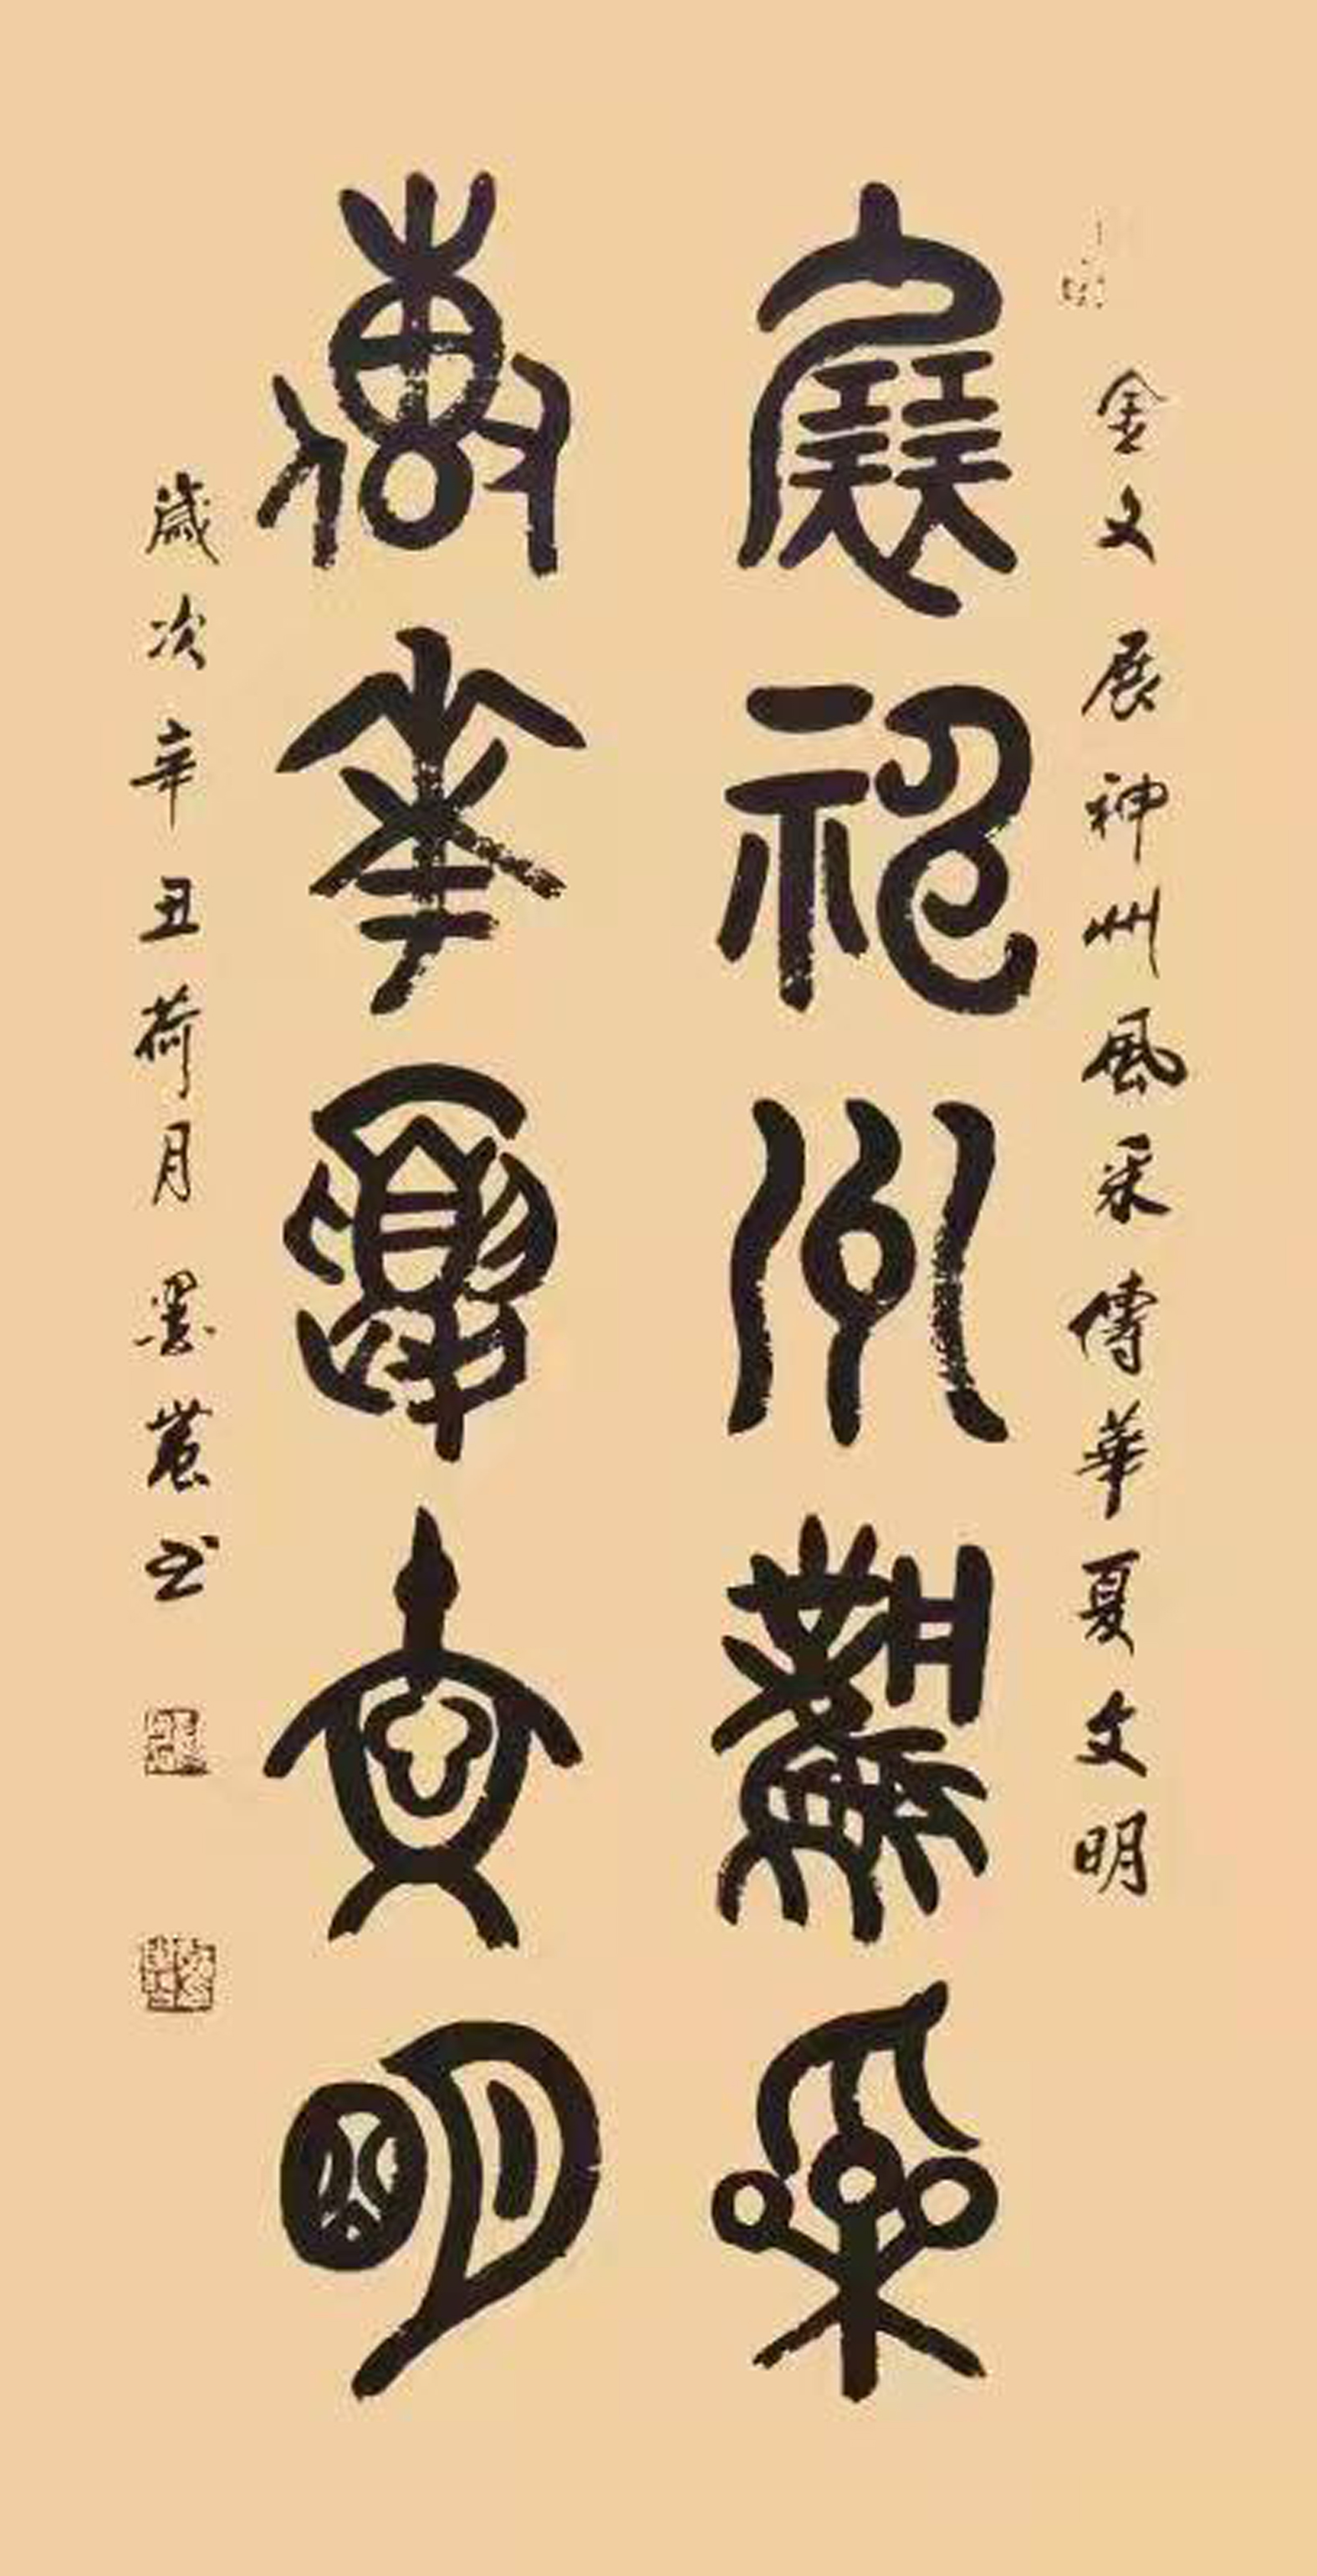 金文 展神州風采 傳華夏文明
展神州風采
傳華夏文明
歲次辛丑荷月 墨農书